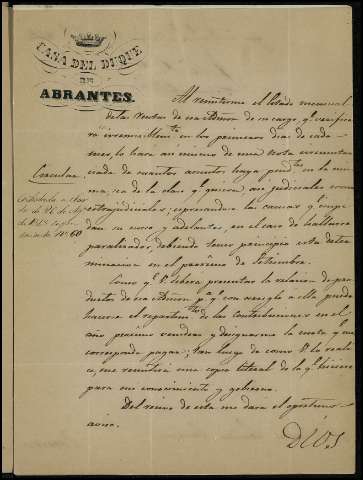 CASA DEL DUQUE
DE
ABRANTES.
Al remitirme el Estado mensual
de las Rentas de esa Admon de su cargo q.e verifica
rá en los primeros dias de cada
mes, lo hará así mismo de una nota circunstan
ciada de cuantos asuntos haya pend.tes en la mis
Circular
ma, sea de la clase q.e quieran así judiciales como
extrajudiciales, espresando las causas q.e impi
dan su curso y adelantos, en el caso de hallarse
paralizados, debiendo tener principio esta deter
minacion en el procsimo de Setiembre.
Como q.e V. deberá presentar la relacion de pro
ductos de esa Admon p.a q.e con arreglo a ella pueda
hacerse el repartim.to de las Contribuciones en el
año procsimo venidero y designarme la cuota q.e me
corresponda pagar; tan luego de como V. lo reali
ce, me remitirá una copia literal de la q.e hiciere
para mi conocimiento y gobierno.
Del recivo de esta me dará el oportuno
aviso.
Contestada a
60
DIOS